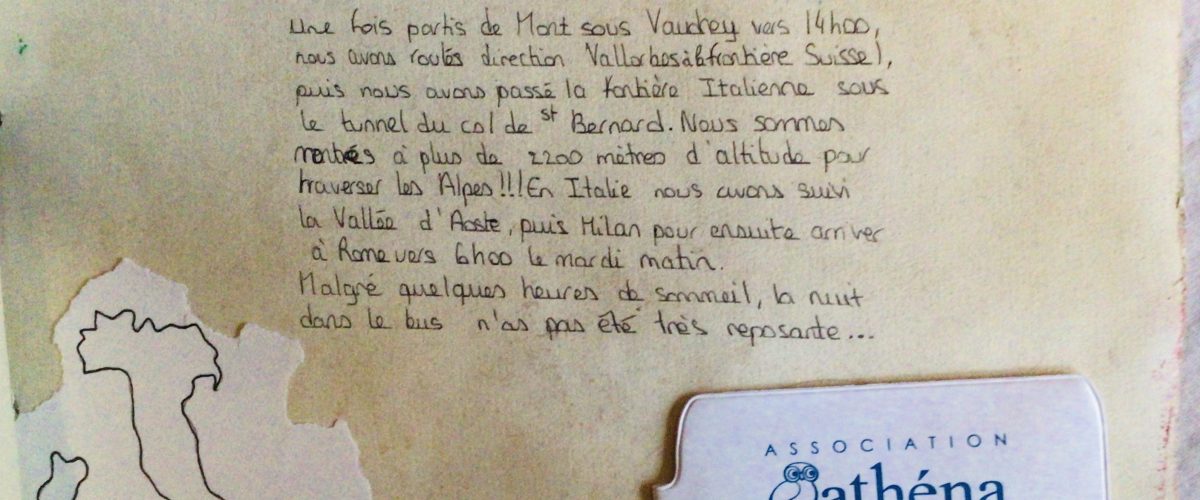 une fois partis de Mont sous Vaudrey vers 14h00,
nous avons roulés direction Vallorbes(à la frontière Suisse),
puis nous avons passé la fontière Italienne sous
le tunnel du col de st Bernard. Nous sommes
montés à plus de 2200 mètres d'altitude pour
traverser les Alpes!!! En Italie nous avons suivi
la Vallée d'Aoste, puis Milan pour ensuite arriver
à Rome vers 6h00 le mardi matin.
Malgré quelques heures de sommeil, la nuit
dans le bus n'as pas été très reposante...
ASSOCIATION
athéna